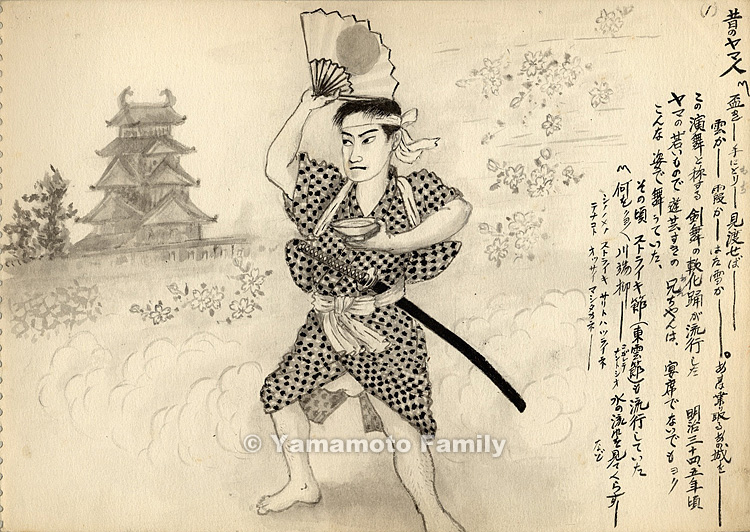 (1)
昔のヤマ人
盃をー手にとりー見渡せばー
雲かー霞かーはた雪かー
あれは業取るあの城をー
この演舞と称する剣舞の軟化踊が流行した 明治三十四五年頃
ヤマの若いもので遊芸ずきの兄ちやんは、宴席でないでもヨク
こんな姿で舞うていた、
その頃 ストライキ節(東雲節)も流行していた
何を 川端柳ー
水の流れを見てくらすー
シノノメノ ストライキ サトハツライネ
テナコト オッサーマシタカネー
© Yamamoto Family